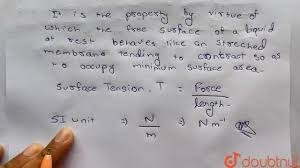 It is the property by virtue of
which the free surface of a liquid
at rest behaves like an streched
membrane tending to contract so as
to occupy minimum surface area.
Surface Tension, T = Force
length
SI unit ⇒ N/m ⇒ N m⁻¹
doubtnut